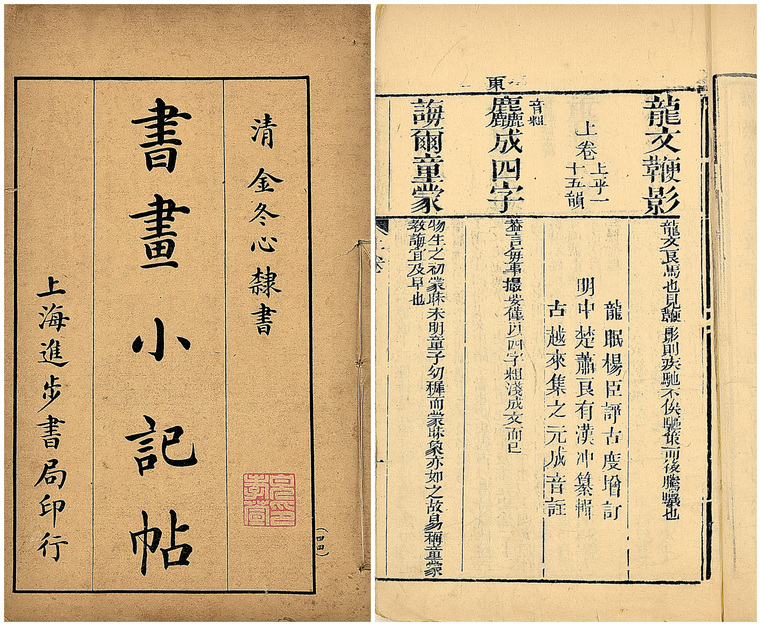 清 金冬心隸書
書畫小記帖
上海進步書局印行
(四四)
龍文鞭影
龍文良馬也見鞭影則疾馳不俟驅策而後騰驤也
上卷
上平一
十五韻
龍眠楊臣諍古度增訂
明中楚蕭良有漢冲纂輯
古越來集之元成音註
東
音粗
麤成四字
蓋言每事僅以四字粗淺成文而已
誨爾童蒙
物生之初蒙昧未明童子幼穉而蒙昧象亦如之故易稱童蒙
教誨宜及早也
上卷